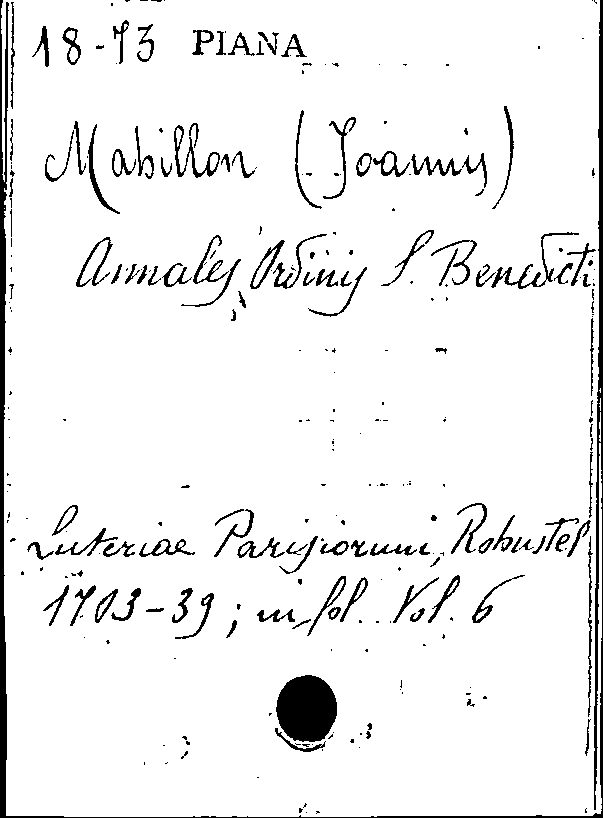 18-73 PIANA
Mabillon (Joannis)
Annales Ordinis S. Benedicti
Luteriae Parisiorum, Robustel
1703-39; in fol. Vol. 6